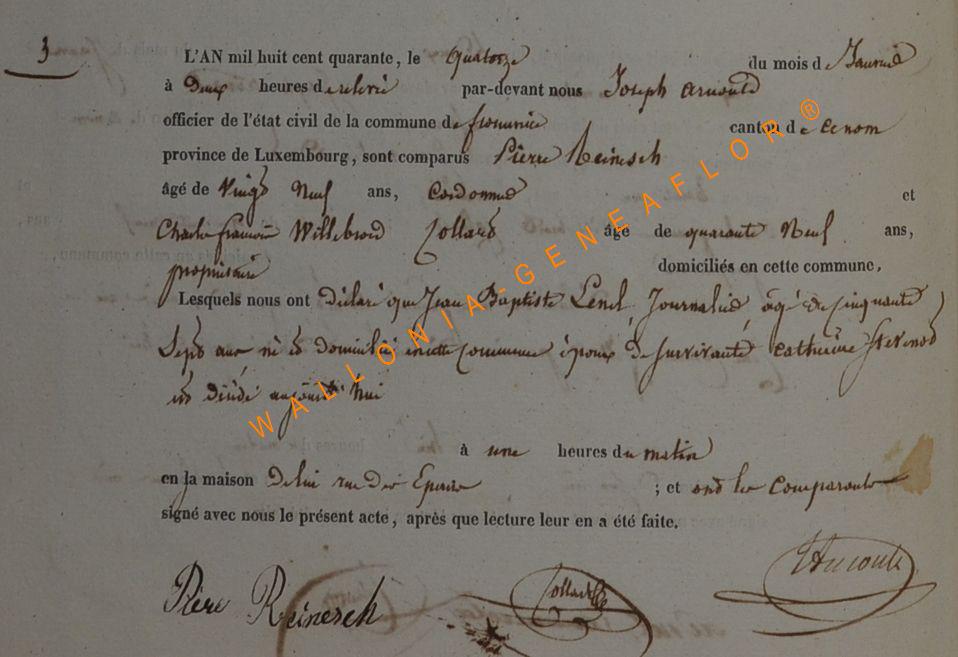 3
L'AN mil huit cent quarante, le quatorze du mois de Janvier
à Deux heures de relevée par-devant nous Joseph arnould
officier de l'état civil de la commune de canton de
province de Luxembourg, sont comparus Pierre Reinesch
âgé de Vingt Neuf ans, Cordonnier et
Charle françois Willebrord Collard âgé de quarante Neuf ans,
propriétaire domiciliés en cette commune,
Lesquels nous ont déclaré que Jean Baptiste Journalier, âgé de cinquante
Sept ans né et domicilié en cette Commune époux de survivante catherine
est décédé aujourd'hui
à une heures du matin
en la maison de lui rue des ; et ont les Comparants
signé avec nous le présent acte, après que lecture leur en a été faite.
Pière Reinesch Collard
WALLONIA-GENEAFLOR ®